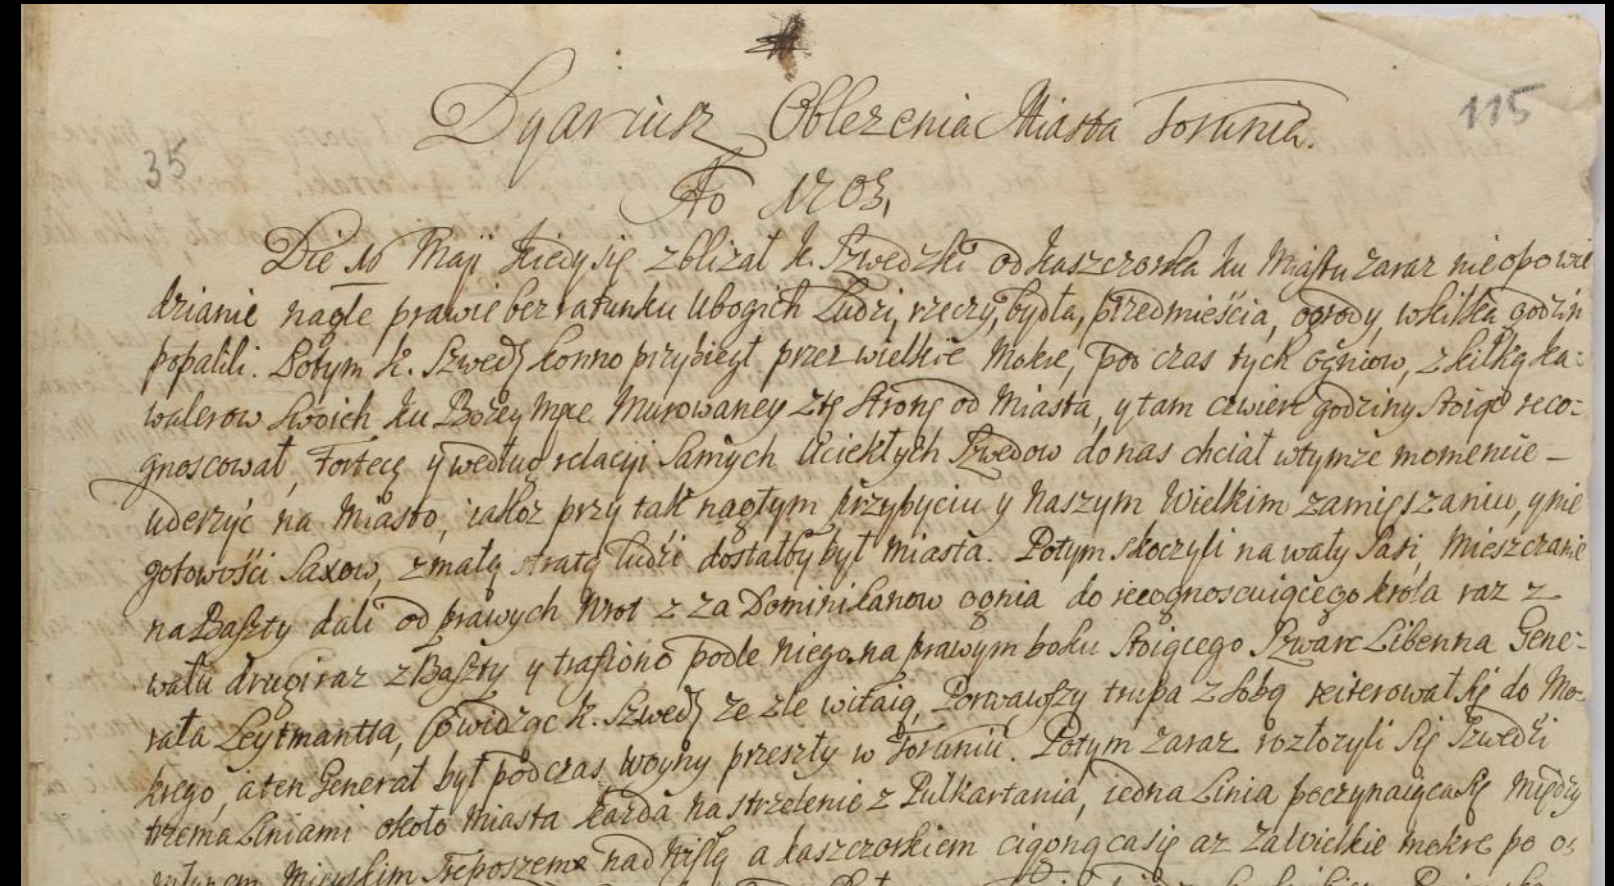 115
Dyariusz Oblezenia Miasta Torunia.
35
Ao 1703.
Die 16 Maji kiedy się zblizał k. Szwedzki od kaszczorka ku Miastu zaraz nieopowie
dzianie nagle prawie bez ratunku Ubogich Ludzi, rzeczy, bydła, przedmieścia, ogrody, w kilka godzin
popalili. Potym k. Szwedz konno przybiegł przez wielkie Mokre, pod czas tych ogniow, z kilką ka:
walerow swoich ku Bożey Męce Murowaney z tę stronę od Miasta, y tam czwierć godziny stoiąc reco:
gnoscował, Fortecę y według relacyi samych Uciekłych Szwedow do nas chciał w tymże momencie –
uderzyć na Miasto, iakoz przy tak nagłym przybyciu y Naszym Wielkim zamięszaniu, y nie
gotowości Saxow, z małą stratą ludzi dostałby był Miasta. Potym skoczyli na wały Sasi, Mieszczanie
na Baszty dali od prawych Wrot z za Dominikanow ognia do recognoscuiącego krola raz z
wału drugi raz z Baszty y trafiono podle niego na prawym boku stoiącego Szwarc Libenna Gene:
rała Leytmantta, Co widząc k. Szwedz ze zle witaią, Porwawszy trupa z sobą reiterował się do Mo:
krego, a ten Generał był podczas woyny przeszły w Toruniu. Potym zaraz rozłozyli się Szwedzi
trzema Liniami około Miasta każda na strzelenie z Pułkartania, iedna Linia poczynaiąca się między
Mieyskim Treposzem nad Wisłą a kaszczorkiem ciągnąca się az za Wielkie mokre po o: